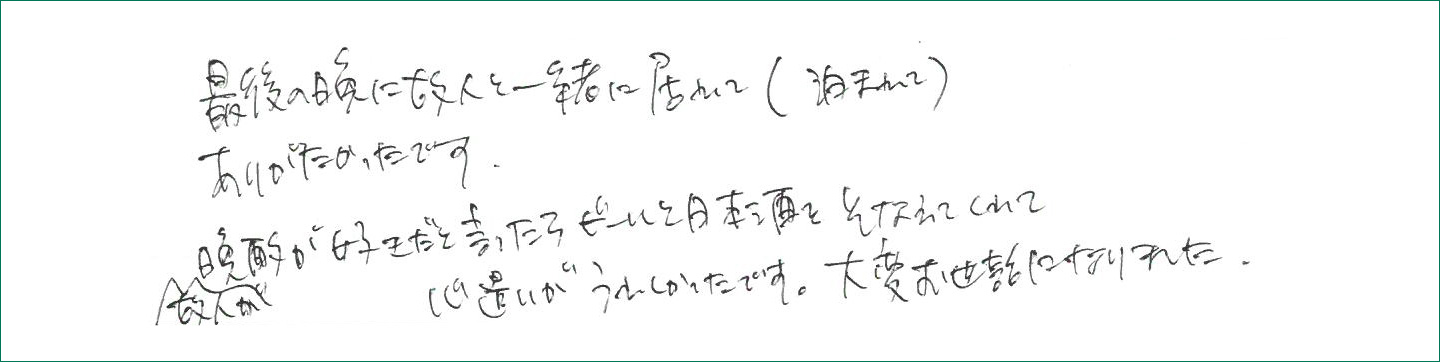 最後の晩に故人と一緒に居れて(泊まれて)
ありがたかったです.
晩酌が好きだと言ったらビールと日本酒をそなえてくれて
故人が
心遣いがうれしかったです。大変お世話になりました.